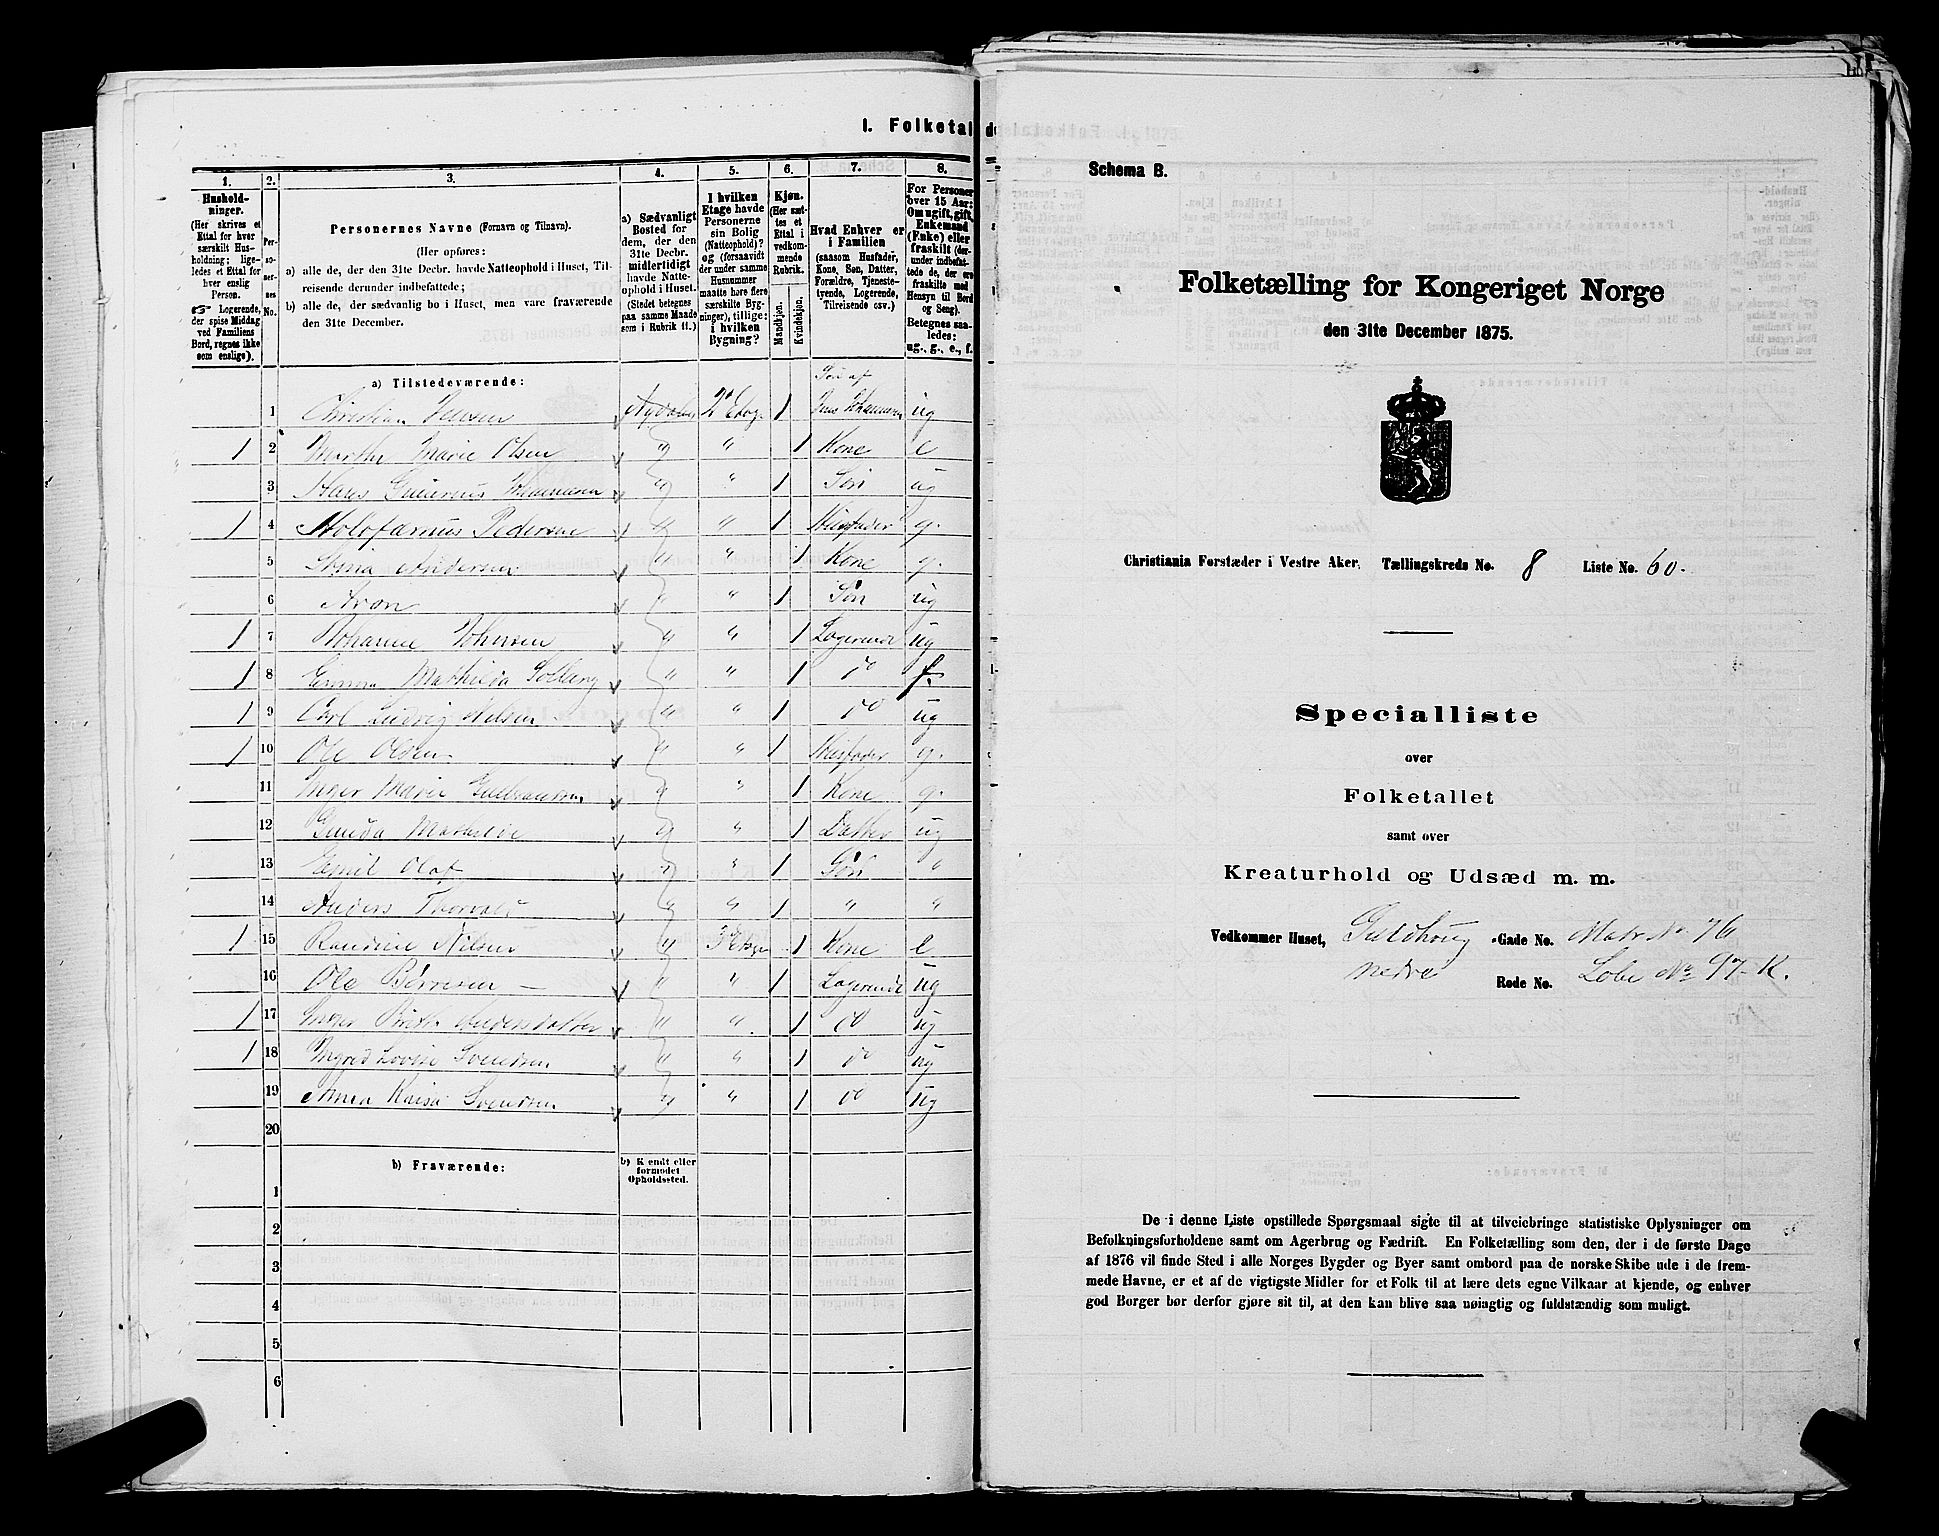 I. Folketal
1. 2. 3. 4. 5. 6. 7. 8.
Hushold-
ninger.
(Her skrives et
Ettal for hver
særskilt Hus-
holdning; lige-
ledes et Ettal for
hver enslig
Person.
Logerende,
der spise Middag
ved Familiens
Bord, regnes ikke
som enslige).
Per-
so-
ner-
nes
No.
Personernes Navne (Fornavn og Tilnavn).
(Her opføres:
a) alle de, der den 31te Decbr. havde Natteophold i Huset, Til-
reisende derunder indbefattede;
b) alle de, der sædvanlig bo i Huset, men vare fraværende
den 31te December.
a) Sædvanligt
Bosted for
dem, der den
31te Decbr.
midlertidigt
havde Natte-
ophold i Huset.
(Stedet betegnes
paa samme Maade
som i Rubrik 11.)
I hvilken
Etage havde
Personerne
sin Bolig
(Natteophold)?
og (forsaavidt
der under samme
Husnummer
maatte høre flere
særskilte Byg-
ninger), tillige:
i hvilken
Bygning?
Kjøn.
(Her sæt-
tes et
Ettal i
vedkom-
mende
Rubrik.
Mandkjøn.
Kvindekjøn.
Hvad Enhver er
i Familien
(saasom Husfader,
Kone, Søn, Datter,
Forældre, Tjeneste-
tyende, Logerende,
Tilreisende osv.)
For Personer
over 15 Aar:
Om ugift, gift,
Enkemand
(Enke) eller
fraskilt (der-
under indbefat-
tede de, der ere
fraskilte med
Hensyn til Bord
og Seng).
Betegnes saa-
ledes:
ug., g., e., f.
a) Tilstedeværende:
Søn af
1 Christian Jensen 2 Etag. 1 Jens Johannesen ug
1 2 Marie Olsen " " 1 Kone e
3 Hans " " 1 Søn ug
1 4 Holofærnus Pedersen " " 1 Husfader g.
5 Andersen " " 1 Kone g.
6 Aron " " 1 Søn ug
1 7 Johanne Johnsen " " 1 Logerende ug
1 8 Emma Mathilda Solberg " " 1 do f.
1 9 Carl Ludvig Nilsen " " 1 do ug
1 10 Ole Olsen " " 1 Husfader g.
11 Inger Marie Gulbrandsen " " 1 Kone g.
12 Gunda Mathilde " " 1 Datter ug
13 Emil Olaf " " 1 Søn "
14 Anders Thorvald " " 1 " "
1 15 Randine Nilsen " 3 Etage 1 Kone e
16 Ole Børresen " " 1 Logerende ug
1 17 Inger Brith Andersdatter " " 1 do ug
1 18 Ingred Lovise Svendsen " " 1 do ug
19 Anna Kaisa Svendsen " " 1 do ug
20
b) Fraværende: b) Kjendt eller
formodet
Opholdssted.
1
2
3
4
5
6
Schema B.
Folketælling for Kongeriget Norge
den 31te December 1875.
Christiania Forstæder i Vestre Aker. Tællingskreds No. 8 Liste No. 60.
Specialliste
over
Folketallet
samt over
Kreaturhold og Udsæd m. m.
Vedkommer Huset, Guldhoug Gade No. Matr No 76
nedre Rode No. Løbe No 97-K.
De i denne Liste opstillede Spørgsmaal sigte til at tilveiebringe statistiske Oplysninger om
Befolkningsforholdene samt om Agerbrug og Fædrift. En Folketælling som den, der i de første Dage
af 1876 vil finde Sted i alle Norges Bygder og Byer samt ombord paa de norske Skibe ude i de frem-
mede Havne, er et af de vigtigste Midler for et Folk til at lære dets egne Vilkaar at kjende, og enhver
god Borger bør derfor gjøre sit til, at den kan blive saa nøiagtig og fuldstændig som muligt.